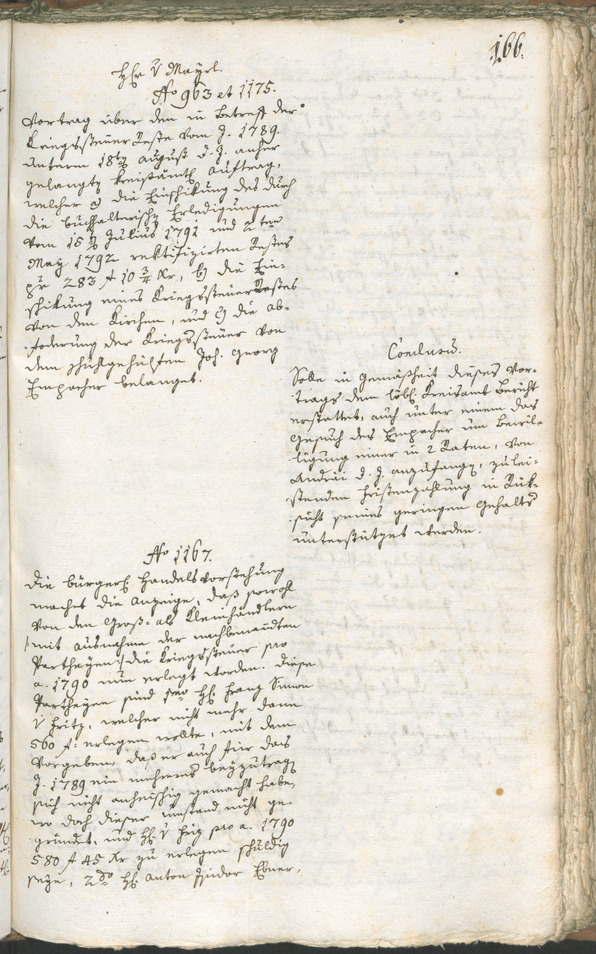 166.
Hr. v Mayrl.
No 963 et 1175.
Vortrag über den in Betreff der
Kriegssteuer Reste vom J. 1789.
unterm 18ten August d. J. anher
gelangten kreisämtl. Auftrag,
welcher a) die Einschikung des durch
die buchhalterische Erledigungen
vom 15ten Julius 1791 und 2ten
May 1792 rektifizirten Restes
pr 283 f 10 3/4 kr, b) die Ein-
schikung eines Kriegssteuer Restes
von den Kirchen, und c) die Ab-
foderung der Kriegssteuer von
dem Schulgehülfen Joh. Georg
Empacher belanget.
Conclusum.
Solle in Gemäßheit dieses Vor-
trags dem löbl. Kreisamt Bericht
erstattet, auch unter einem das
Gesuch des Empacher um Bewil-
ligung einer in 2 Raten, von
Andräi d. J. anzufangen, zu lei-
stenden Fristenzahlung in Rük-
sicht seines geringen Gehalts
unterstützet werden.
No 1167.
Die bürgerl. Handelsvorstehung
machet die Anzeige, daß sowohl
von den Groß- als Kleinhändlern
/: mit Ausnahme der nachbenannten
Partheyen :/ die Kriegssteuer pro
a. 1790 nun erlegt worden. Diese
Partheyen sind 1mo Hr. Franz Simon
v Fritz, welcher nicht mehr dann
560 f: erlegen wollte, mit dem
Vorgeben, daß er auch für das
J. 1789 ein mehreres beyzutragen
sich nicht anheischig gemacht habe,
wo doch dieser Umstand nicht ge-
gründet, und Hr. v Friz pro a. 1790
580 f 45 kr zu erlegen schuldig
seye, 2do Hr. Anton Isidor Ebner,